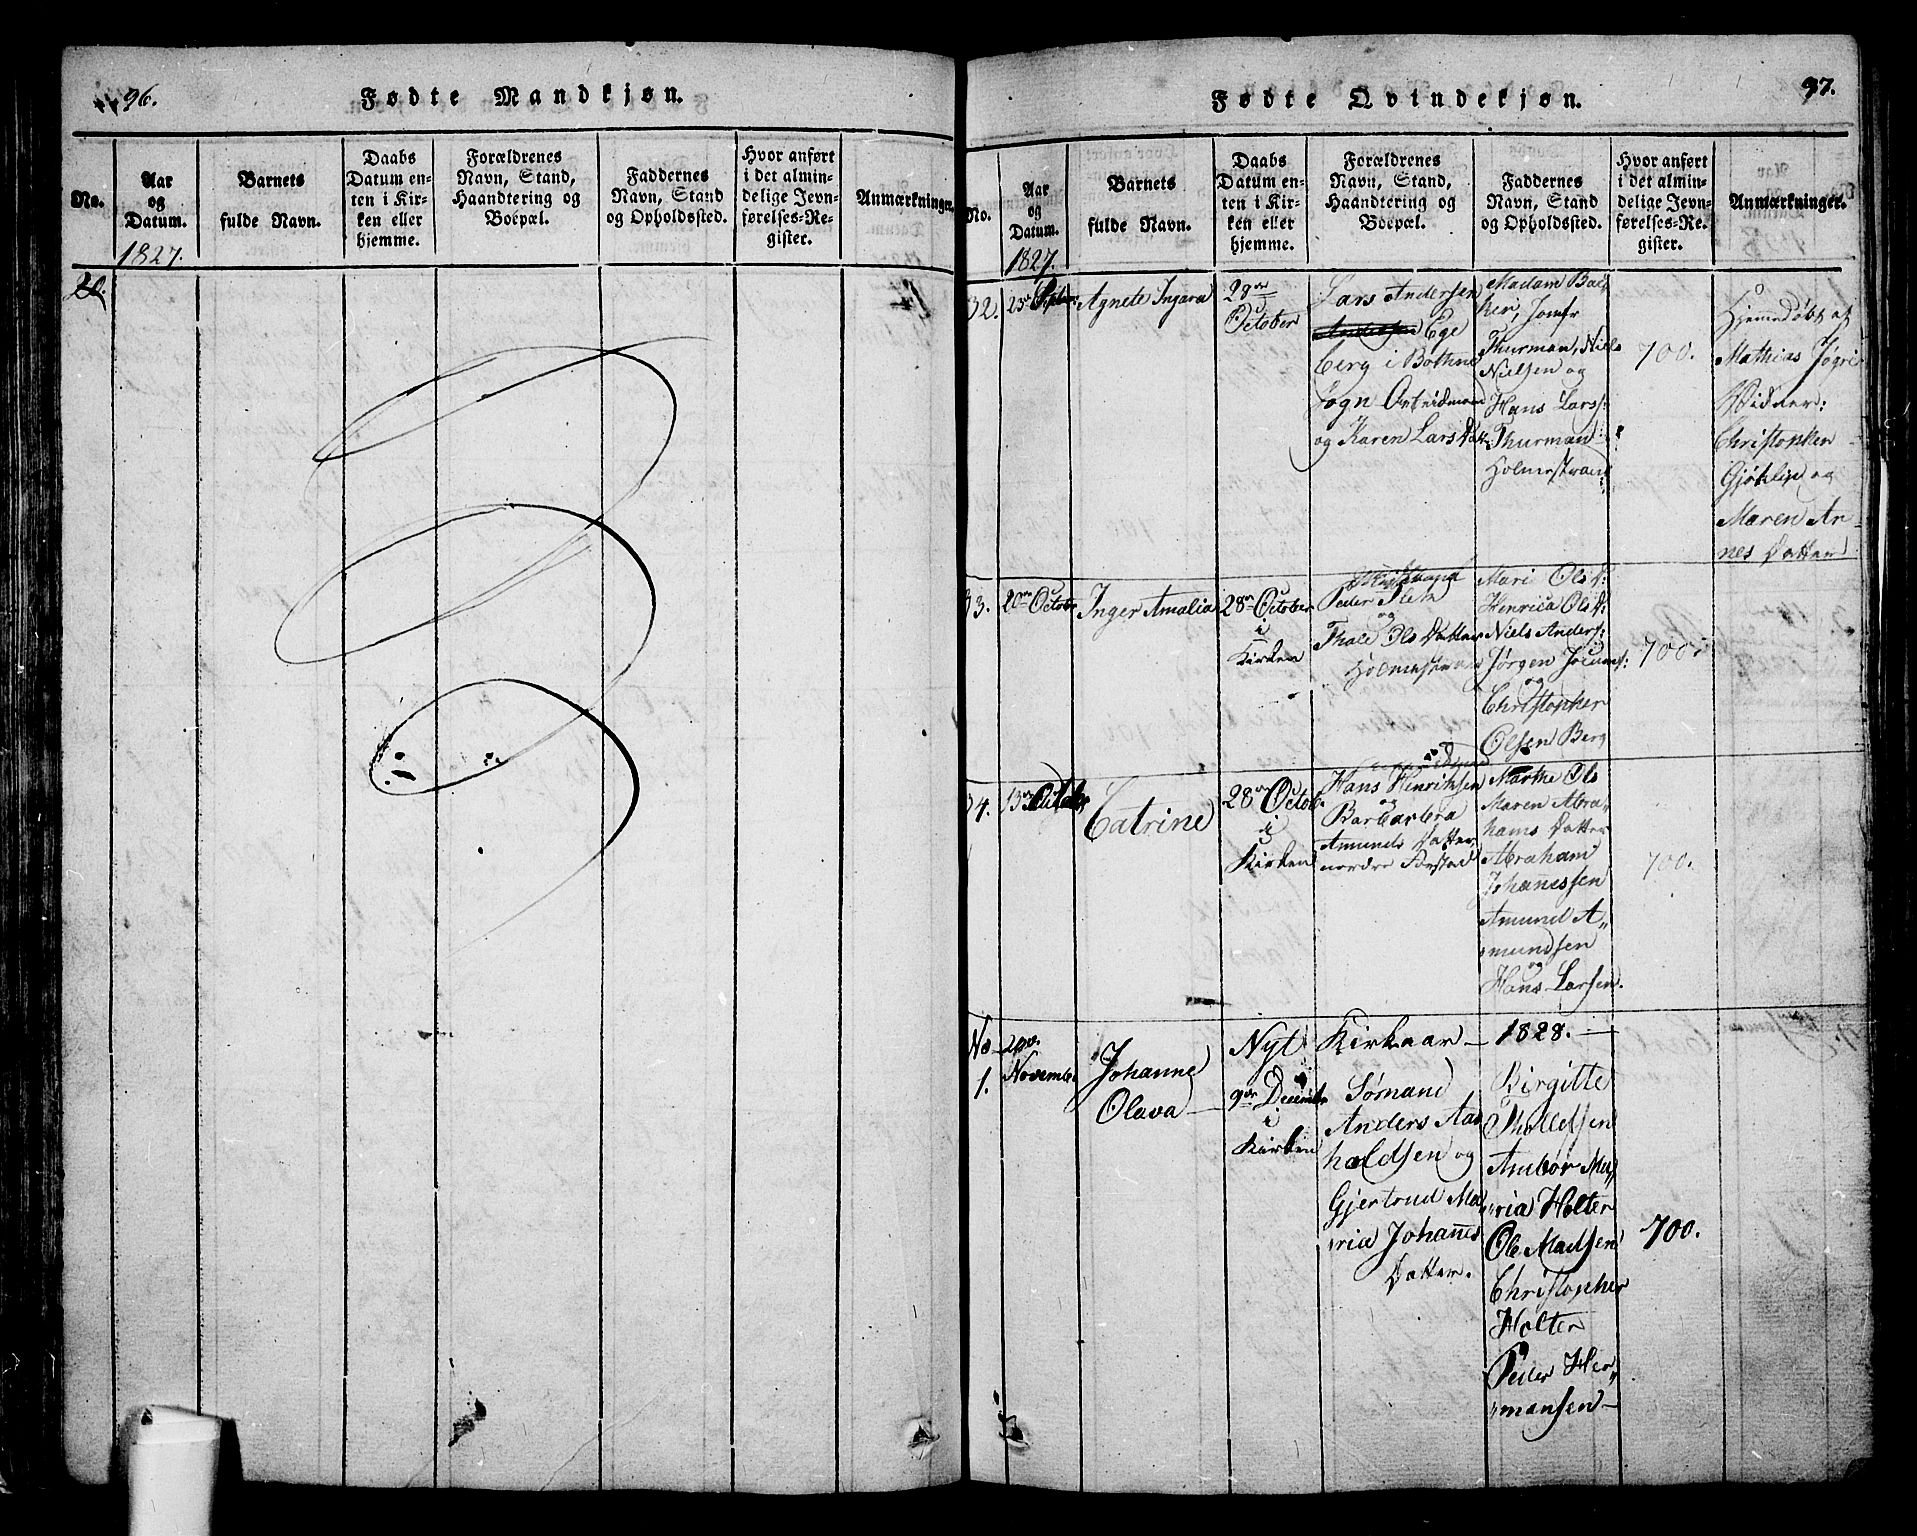 96.
Fødte Mandkjøn.
No.
Aar
og
Datum.
1827.
Barnets
fulde Navn.
Daabs
Datum en-
ten i Kir-
ken eller
hjemme.
Forældrenes
Navn, Stand,
Haandtering og
Boepæl.
Faddernes
Navn, Stand
og Opholdssted.
Hvor anført
i det almin-
delige Jevn-
førelses-Re-
gister.
Anmærkninger.
97.
Fødte Qvindekjøn.
No.
Aar
og
Datum.
1827.
Barnets
fulde Navn.
Daabs
Datum en-
ten i Kir-
ken eller
hjemme.
Forældrenes
Navn, Stand,
Haandtering og
Boepæl.
Faddernes
Navn, Stand
og Opholdssted.
Hvor anført
i det almin-
delige Jevn-
førelses-Re-
gister.
Anmærkninger.
32.
Agnete Ingara
28de
October
Lars Andersen
Ege
berg i Bothne
Sogn
og Karen Lars Datter
Madam Bac
ker, Jomfr
Thurman, Niels
Nielsen og
Hans Larss:
Thurman
Holmestrand
700.
Hjemedøbt af
Mathias
Vidner:
Christopher
og
Maren Ar-
nes Datter
33.
20de October
Inger Amalia
28de October
i
Kirken
Peder
og
Thale Ols Datter
Holmestrand
Mari Ols D:
Henrica Ols D:
Niels Anders:
Jørgen Jocums:
og
Christopher
Olsen Berg
700.
34.
13de October
Catrine
28de Octob.
i
Kirken
Hans Henriksen
og
Barbarbra
Amunds Datter
nordre
Marthe Ols
Maren Abra-
hams Datter
Abraham
Johannessen
Amund A-
mundsen
og
Hans Larsen.
700.
No
1.
November
Johanne
Olava
Nyt Kirkaar - 1828. -
9de December
i
Kirken
Sømand
Anders Aas
holdsen og
Gjertrud Ma-
ria Johannes
Datter.
Birgitte
Tholledsen
Ambor Ma-
ria Holter
Ole Madsen
Christopher
Holter
Peder Her-
mansen
700.